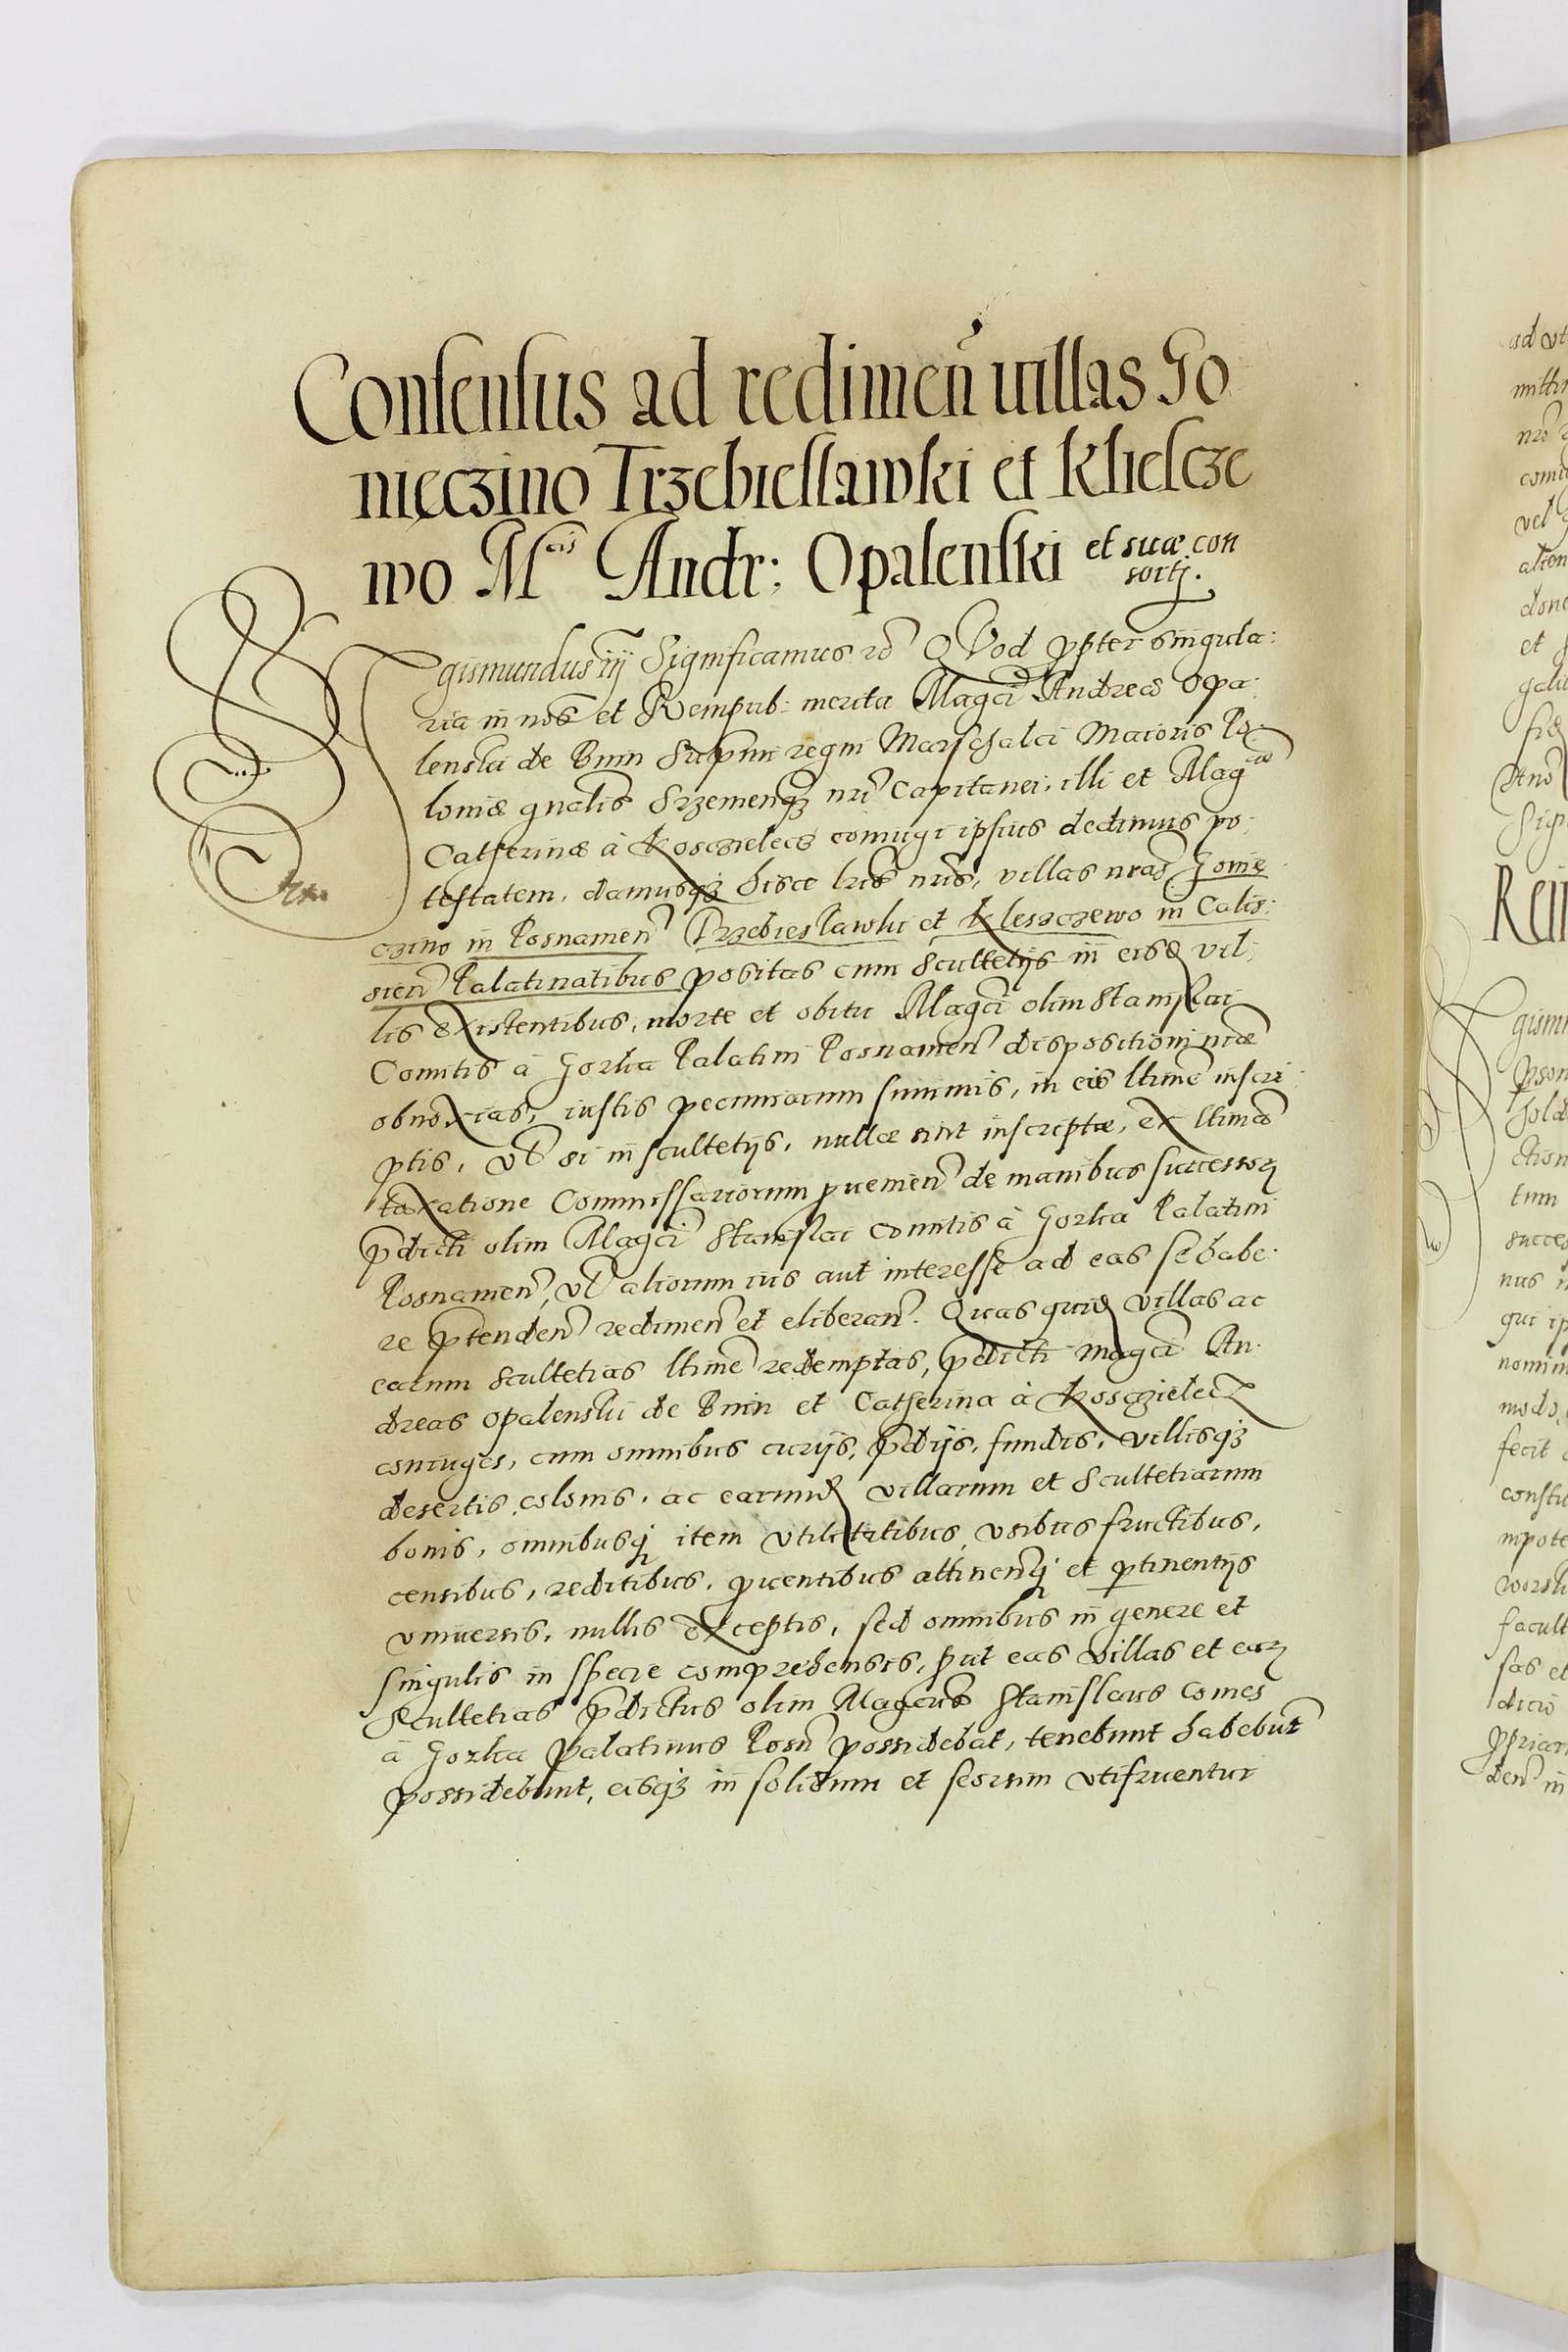 Consensus ad redimen̄ uillas Go
nięczino Trzebieslawski et Klescze
wo Mcis Andr: Opalenski et suæ con
sorti.
Sigismundus iij Significamus rc̃ QVod ꝓpter singula:
ria in nos et Rempub: merita Magci Andreæ Opa:
lenski de Bnin Supmi regni Marschalci Maioris Po:
loniæ gnalis Srzemenqꝫ nri Capitanei, illi et Magcæ
Catherinæ à Kosczielecz coniugi ipsius dedimus po:
testatem, damusqꝫ hisce lris nris, villas nras Gonie
czino in Posnamen̄ Trzebieslawki et Kleszczewo in Calis:
sien̄ Palatinatibus positas cum scultetijs in eisd vil:
lis existentibus, morte et obitu Magci olim Stanislai
Comitis à Gorka Palatini Posnamen̄ dispositioni nræ
obnoxias, iustis pecuniarum summis, in eis ltime inscri:
ptis, vel si in scultetijs, nullæ sint inscriptæ, ex ltima
taxatione Commissariorum ꝓuenien̄ de manibus successorꝝ
p̄dicti olim Magci Stanislai Comitis à Gorka Palatini
Posnamen̄, vel aliorum ius aut interesse ad eas se habe:
re p̄tenden̄ redimen̄ et eliberan̄. Quas quid villas ac
earum scultetias ltime redemptas, p̄dicti magci An:
dreas Opalenski de Bnin et Catherina à Kosczielecz
coniuges, cum omnibus curijs, p̄dijs, fundis, villisqꝫ
desertis, colonis, ac earund villarum et scultetiarum
bonis, omnibusqꝫ item vtilitatibus, vsibus fructibus,
censibus, reditibus, ꝓuentibus attinenqꝫ et ꝑtinentijs
vniuersis, nullis exceptis, sed omnibus in genere et
singulis in specie comprehensis, ꝓut eas villas et earꝝ
scultetias p̄dictus olim Magcus Stanislaus Comes
à Gorka palatinus Posn̄ possidebat, tenebunt habebunt
possidebunt, eisqꝫ in solidum et seorsim vtifruentur